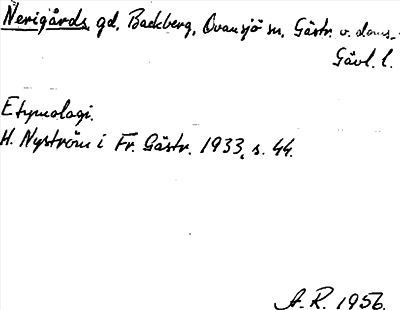 Nerigårds gd, Backberg, Ovansjö sn, Gästr. v. doms.
Gävl. l.
Etymologi.
H. Nyström i Fr. Gästr. 1933, s. 44.
A. R. 1956.